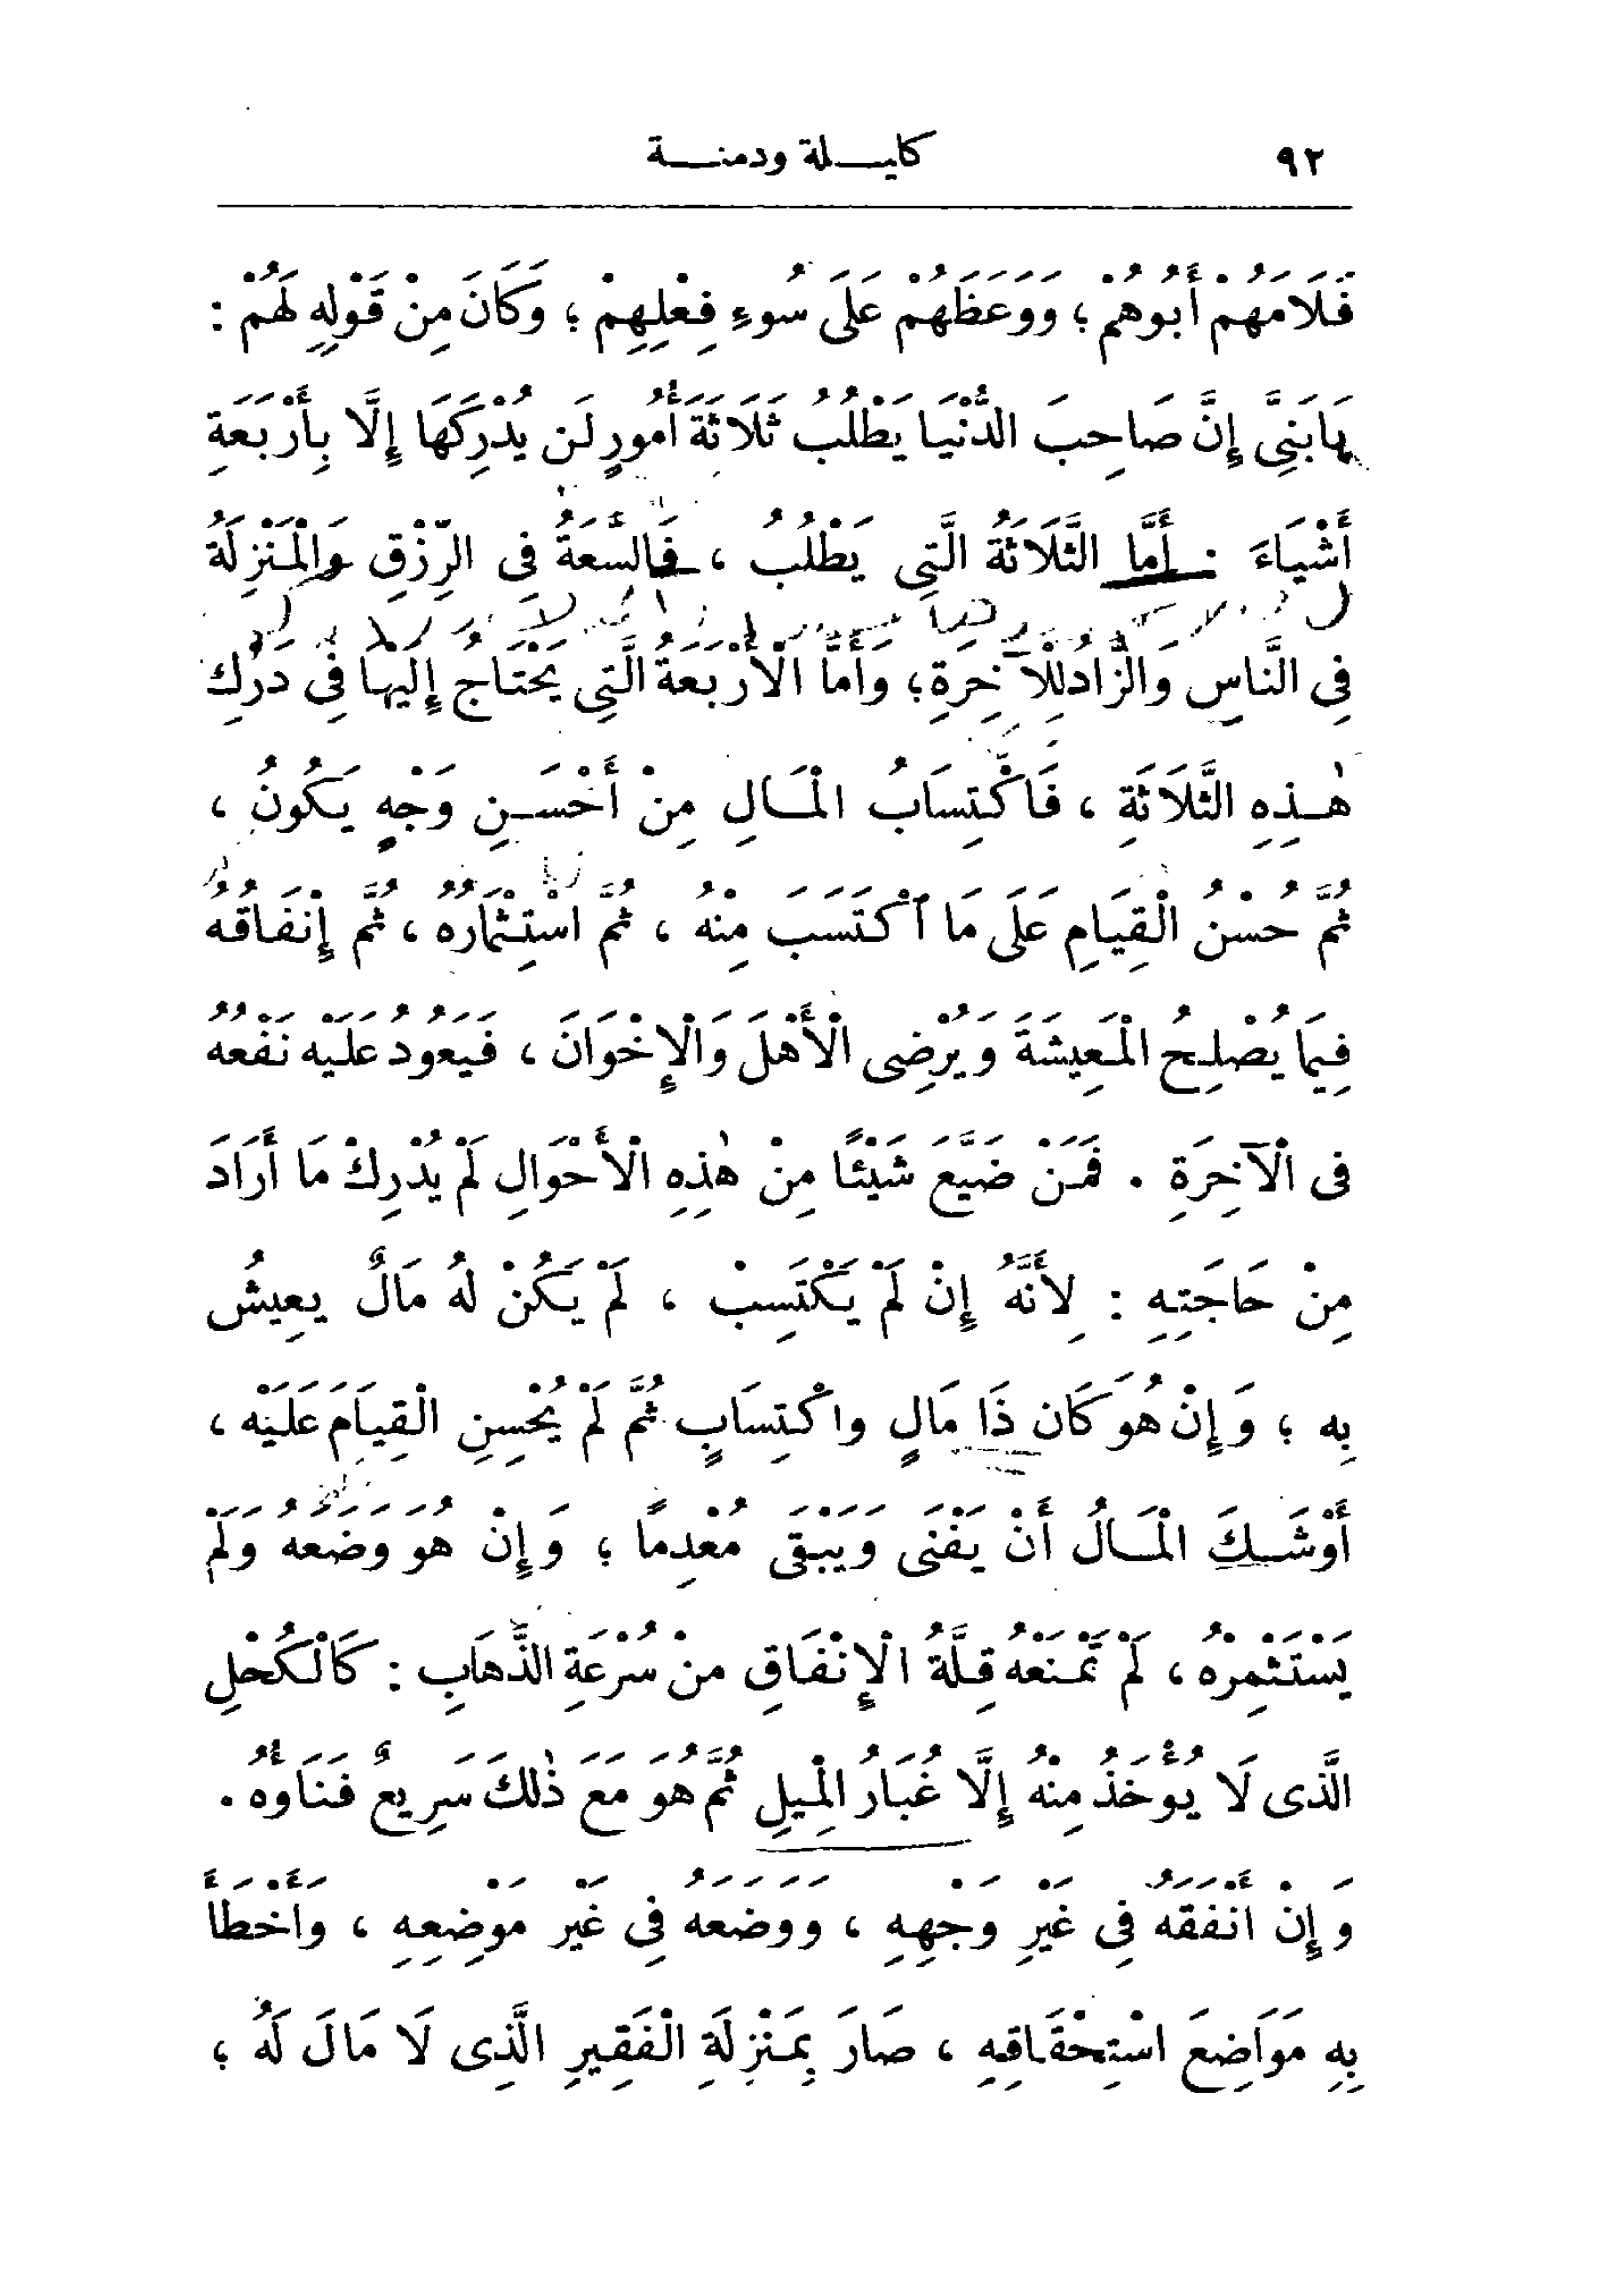 ٩٢ كليلة ودمنة
فَلَامَهُمْ أَبُوهُمْ ؛ وَوَعَظَهُمْ عَلَى سُوءِ فِعْلِهِمْ ؛ وَكَانَ مِنْ قَوْلِهِ لَهُمْ :
يَا بَنِيَّ إِنَّ صَاحِبَ الدُّنْيَا يَطْلُبُ ثَلَاثَةَ أُمُورٍ لَن يُدْرِكَهَا إِلَّا بِأَرْبَعَةِ
أَشْيَاءَ : أَمَّا الثَّلَاثَةُ الَّتِي يَطْلُبُ ، فَالسَّعَةُ فِي الرِّزْقِ وَالْمَنْزِلَةُ
فِي النَّاسِ وَالزَّادُ لِلْآخِرَةِ ؛ وَأَمَّا الْأَرْبَعَةُ الَّتِي يَحْتَاجُ إِلَيْهَا فِي دَرَكِ
هٰذِهِ الثَّلَاثَةِ ، فَاكْتِسَابُ الْمَالِ مِنْ أَحْسَنِ وَجْهٍ يَكُونُ ،
ثُمَّ حُسْنُ الْقِيَامِ عَلَى مَا ٱكْتَسَبَ مِنْهُ ، ثُمَّ اسْتِثْمَارُهُ ، ثُمَّ إِنْفَاقُهُ
فِيمَا يُصْلِحُ الْمَعِيشَةَ وَيُرْضِى الْأَهْلَ وَالْإِخْوَانَ ، فَيَعُودُ عَلَيْهِ نَفْعُهُ
فى الْآخِرَةِ . فَمَنْ ضَيَّعَ شَيْئًا مِنْ هٰذِهِ الْأَحْوَالِ لَمْ يُدْرِكْ مَا أَرَادَ
مِنْ حَاجَتِهِ : لِأَنَّهُ إِنْ لَمْ يَكْتَسِبْ ، لَمْ يَكُنْ لَهُ مَالٌ يَعِيشُ
بِه ؛ وَإِنْ هُوَ كَان ذَا مَالٍ واكْتِسَابٍ ثُمَّ لَمْ يُحْسِنِ الْقِيَامَ عَلَيْه ،
أَوْشَكَ الْمَالُ أَنْ يَفْنَى وَيَبْقَى مُعْدِمًا ؛ وَإِنْ هُوَ وَضَعَهُ وَلَمْ
يَسْتَثْمِرْهُ ، لَمْ تَمْنَعْهُ قِلَّةُ الْإِنْفَاقِ منْ سُرْعَةِ الذَّهَابِ : كَالْكُحْلِ
الَّذى لَا يُؤْخَذُ مِنْهُ إِلَّا غُبَارُ الْمِيلِ ثُمَّ هُوَ مَعَ ذٰلكَ سَرِيعٌ فَنَاؤُهُ .
وَإِنْ أَنْفَقَهُ فِى غَيْرِ وَجْهِهِ ، وَوَضَعَهُ فِى غَيْرِ مَوْضِعِهِ ، وَأَخْطَأَ
بِهِ مَوَاضِعَ اسْتِحْقَاقِهِ ، صَارَ بِمَنْزِلَةِ الْفَقِيرِ الَّذِى لَا مَالَ لَهُ ؛